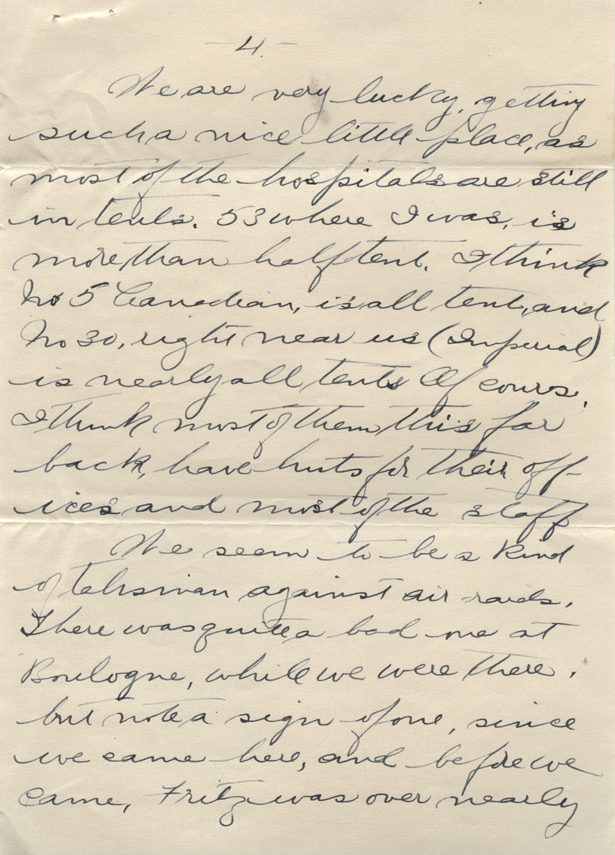 - 4. -
We are very lucky, getting
such a nice little place, as
most of the hospitals are still
in tents. 53 where I was, is
more than half tent. I think
No 5 Canadian, is all tent, and
No 30, right near us (Imperial)
is nearly all tents Of cours,
I think most of them this far
back, have huts for their off-
ices and most of the staff
We seem to be a kind
of talisman against air raids.
There was quite a bad one at
Boulogne, while we were there,
but not a sign of one, since
we came here, and before we
came, Fritz was over nearly